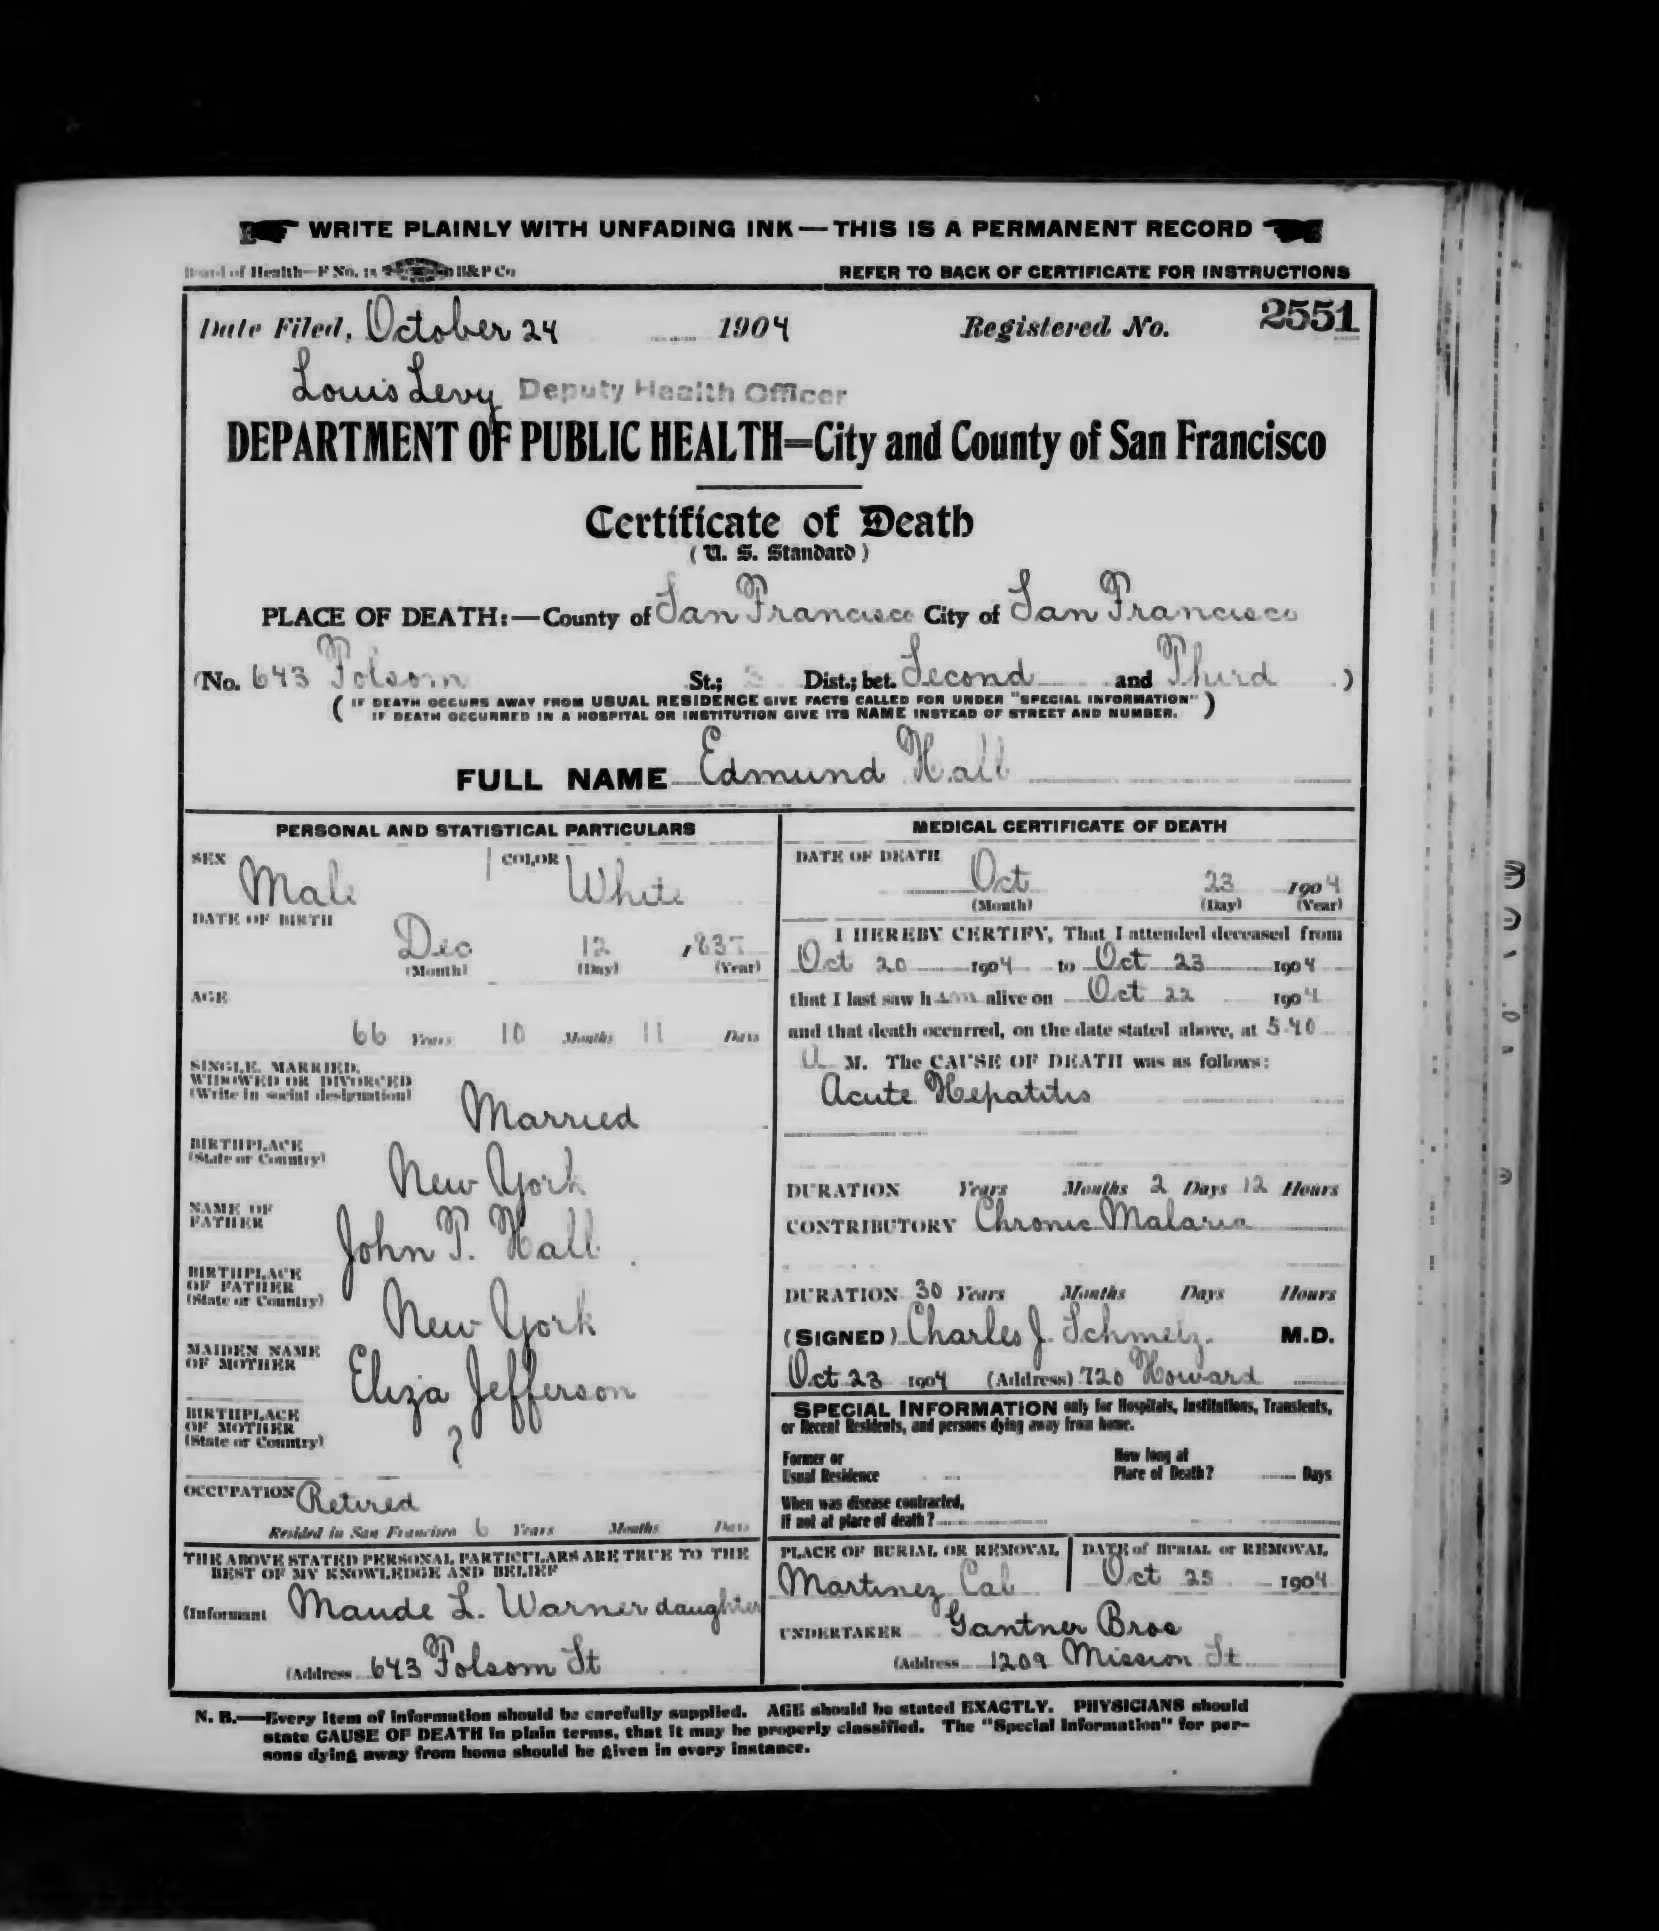 WRITE PLAINLY WITH UNFADING INK — THIS IS A PERMANENT RECORD
Board of Health—F No. 15 H&P Co
REFER TO BACK OF CERTIFICATE FOR INSTRUCTIONS
Date Filed, October 24 1904 Registered No. 2551
Louis Levy Deputy Health Officer
DEPARTMENT OF PUBLIC HEALTH=City and County of San Francisco
Certificate of Death
(U. S. Standard)
PLACE OF DEATH:—County of San Francisco City of San Francisco
(No. 643 Folsom St.; Dist.; bet. Second and Third )
( IF DEATH OCCURS AWAY FROM USUAL RESIDENCE GIVE FACTS CALLED FOR UNDER "SPECIAL INFORMATION" )
IF DEATH OCCURRED IN A HOSPITAL OR INSTITUTION GIVE ITS NAME INSTEAD OF STREET AND NUMBER.
FULL NAME Edmund Hall
PERSONAL AND STATISTICAL PARTICULARS
SEX Male COLOR White
DATE OF BIRTH
Dec 12 1837
(Month) (Day) (Year)
AGE
66 Years 10 Months 11 Days
SINGLE, MARRIED,
WIDOWED OR DIVORCED
(Write in social designation)
Married
BIRTHPLACE
(State or Country)
New York
NAME OF
FATHER
John P. Hall
BIRTHPLACE
OF FATHER
(State or Country)
New York
MAIDEN NAME
OF MOTHER
Eliza Jefferson
BIRTHPLACE
OF MOTHER
(State or Country)
?
OCCUPATION Retired
Resided in San Francisco 6 Years Months Days
THE ABOVE STATED PERSONAL PARTICULARS ARE TRUE TO THE
BEST OF MY KNOWLEDGE AND BELIEF
(Informant Maude L. Warner daughter
(Address 643 Folsom St
MEDICAL CERTIFICATE OF DEATH
DATE OF DEATH
Oct 23 1904
(Month) (Day) (Year)
I HEREBY CERTIFY, That I attended deceased from
Oct 20 1904 to Oct 23 1904
that I last saw him alive on Oct 22 1904
and that death occurred, on the date stated above, at 5.40
A M. The CAUSE OF DEATH was as follows:
Acute Hepatitis
DURATION Years Months 2 Days 12 Hours
CONTRIBUTORY Chronic Malaria
DURATION 30 Years Months Days Hours
(SIGNED) Charles J. Schmelz. M.D.
Oct 23 1904 (Address) 720 Howard
SPECIAL INFORMATION only for Hospitals, Institutions, Transients,
or Recent Residents, and persons dying away from home.
Former or
Usual Residence
How long at
Place of Death? Days
When was disease contracted,
If not at place of death?
PLACE OF BURIAL OR REMOVAL
Martinez Cal
DATE of BURIAL or REMOVAL
Oct 25 1904
UNDERTAKER Gantner Bros
(Address 1209 Mission St
N. B.—Every item of information should be carefully supplied. AGE should be stated EXACTLY. PHYSICIANS should
state CAUSE OF DEATH in plain terms, that it may be properly classified. The "Special Information" for per-
sons dying away from home should be given in every instance.